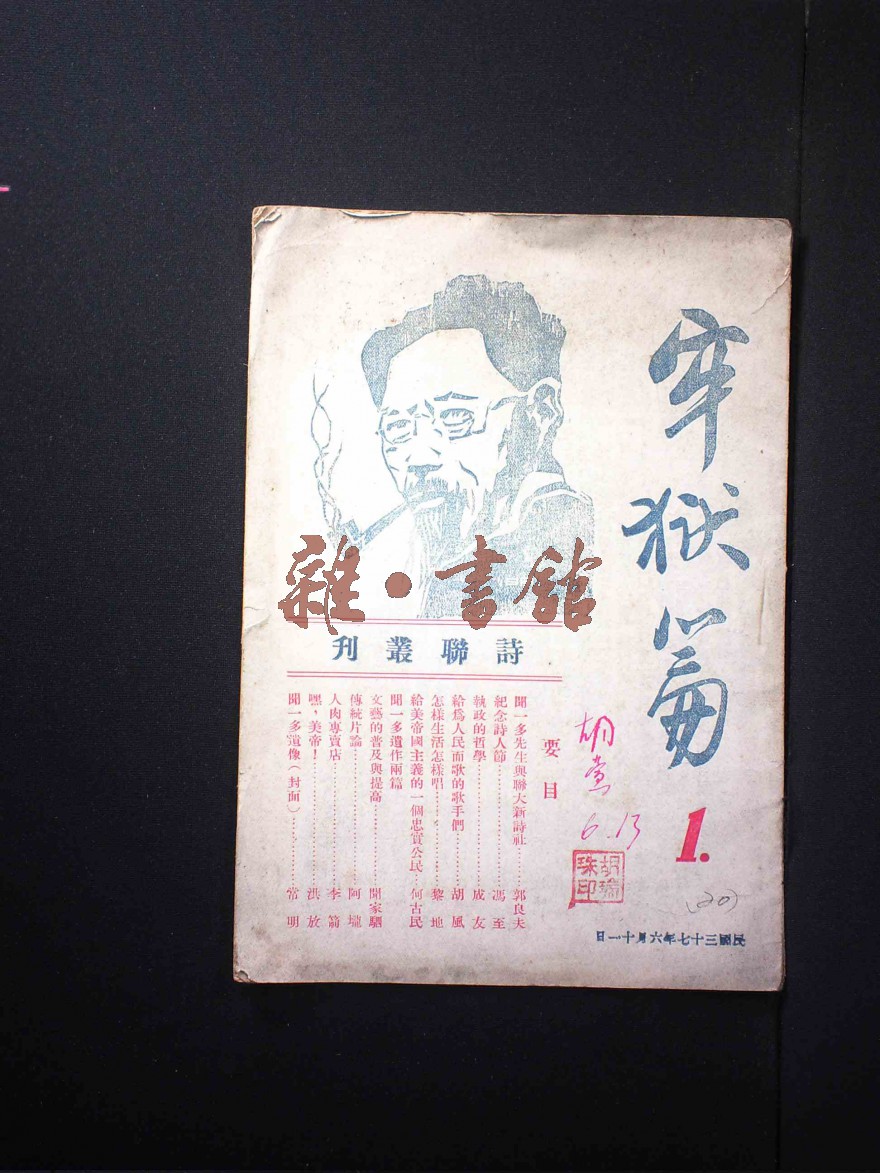 牢獄篇
1.
詩聯叢刊
要目
聞一多先生與聯大新詩社……郭良夫
紀念詩人節……馮至
執政的哲學……成友
給爲人民而歌的歌手們……胡風
怎樣生活怎樣唱……黎地
給美帝國主義的一個忠實公民…何古民
聞一多遺作兩篇
文藝的普及與提高……聞家駟
傳統片論……阿壠
人肉專賣店……李箭
嘿，美帝！……洪放
聞一多遺像（封面）……常明
6.13
(20)
民國三十七年六月十一日
雜·書館